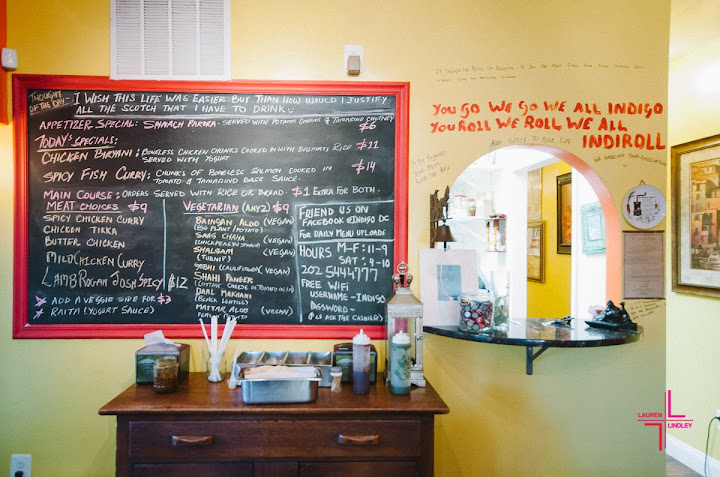 THOUGHT OF THE DAY - I WISH THIS LIFE WAS EASIER BUT THAN HOW WOULD I JUSTIFY
ALL THE SCOTCH THAT I HAVE TO DRINK
APPETIZER SPECIAL: SPINACH PAKORA - SERVED WITH POTATO ONIONS & TAMARIND CHUTNEY
$6
TODAY SPECIALS:
CHICKEN BIRYANI: BONELESS CHICKEN CHUNKS COOKED IN WITH BASMATI RICE $11
SERVED WITH YOGURT
SPICY FISH CURRY: CHUNKS OF BONELESS SALMON COOKED IN $14
TOMATO & TAMARIND BASE SAUCE.
MAIN COURSE: ORDERS SERVED WITH RICE OR BREAD. $1 EXTRA FOR BOTH.
MEAT CHOICES $9
SPICY CHICKEN CURRY
CHICKEN TIKKA
BUTTER CHICKEN
MILD CHICKEN CURRY
LAMB ROGAN JOSH SPICY $12
ADD A VEGGIE SIDE FOR $3
RAITA (YOGURT SAUCE)
VEGETARIAN (ANY 2) $9
BAINGAN ALOO (VEGAN)
(EGG PLANT/POTATO)
SANG CHANA (VEGAN)
(CHICKPEAS IN SPINACH)
SHALGAM (VEGAN)
(TURNIP)
GOBHI (CAULIFLOWER) (VEGAN)
SHAHI PANEER
(COTTAGE CHEESE IN TOMATO
DAAL MAKHANI
(BLACK LENTILS)
MATTAR ALOO (VEGAN)
POTATO
FRIEND US ON
FACEBOOK @INDIGO DC
FOR DAILY MENU UPLOADS
HOURS M-F: 11-9
SAT: 4-10
202 5444777
FREE WIFI
USERNAME - INDIGO
PSSWORD -
(PLS ASK THE CASHIER)
YOU GO WE GO WE ALL INDIGO
YOU ROLL WE ROLL WE ALL
INDIROLL
ADD SPICE TO YOUR LIFE
LAUREN
LINDLEY